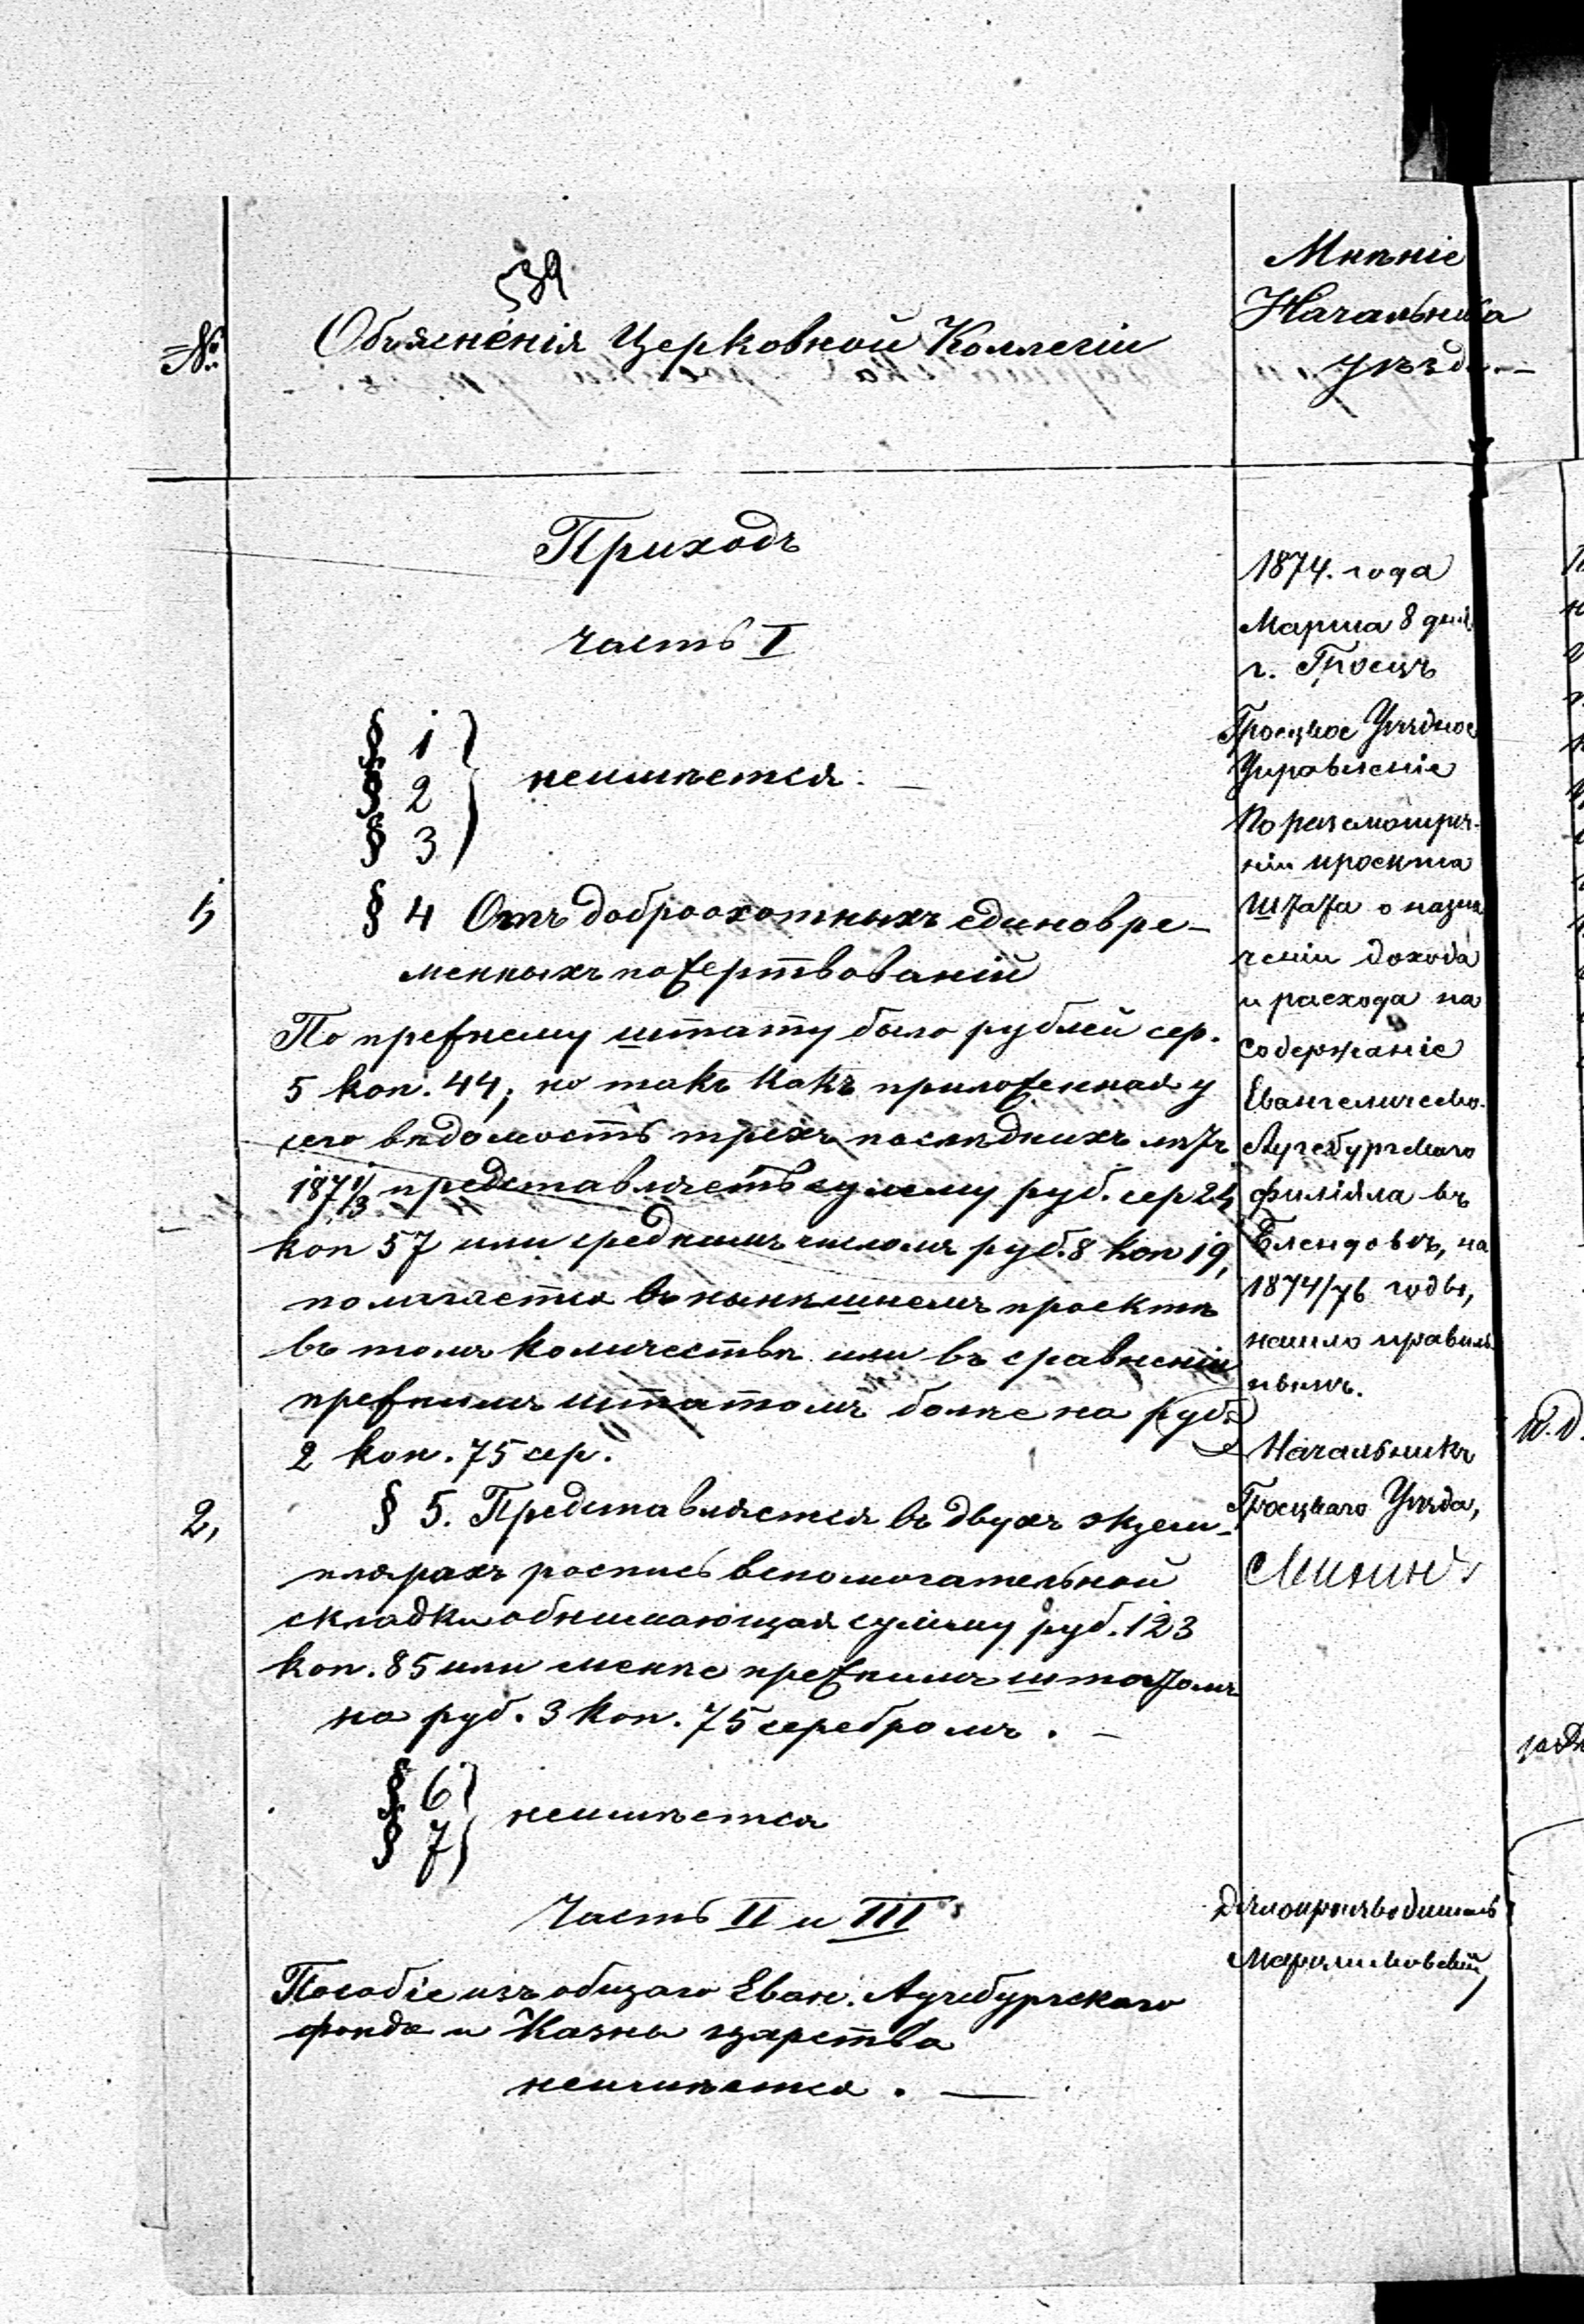 539
№
Объясненія Церковной Коллегіи
Мнѣніе
Начальника
уѣзда
Приходъ
часть I
§ 1
§ 2
§ 3
неимѣется.
1,
§ 4 Отъ доброохотныхъ единовре-
менныхъ пожертвованій
По прежнему штату было рублей сер.
5 коп. 44, но такъ какъ приложенная у
сего вѣдомость трехъ послѣднихъ лѣтъ
1871/3 представляетъ сумму руб. сер 24
коп 57 или среднимъ числомъ руб. 8 коп 19,
полагается въ нынѣшнемъ проектѣ
въ томъ количествѣ или въ сравненіи
прежнимъ штатомъ болѣе на руб.
2 коп. 75 сер.
2,
§ 5. Представляется въ двухъ экзем-
плярахъ роспись вспомогательной
складки обнимающая сумму руб. 123
коп. 85 или менѣе прежнимъ штатомъ
на руб. 3 коп. 75 серебромъ. —
§ 6
§ 7
неимѣется
Часть II и III
Пособіе изъ общаго Еван. Аугсбургскаго
фонда и Казны царства
неимѣется. —
1874. года
Марта 8 дня
г. Гроецъ
Гроецкое Уѣздное
Управленіе
По разсмотрѣ-
ніи проекта
Штата о назна
ченіи дохода
и расхода на
содержаніе
Евангелическо-
Аугсбургскаго
филіяла въ
Блендовѣ, на
1874/76 годы,
нашло правиль
нымъ.
Начальникъ
Гроецкаго Уѣзда,
Дѣлопроизводитель